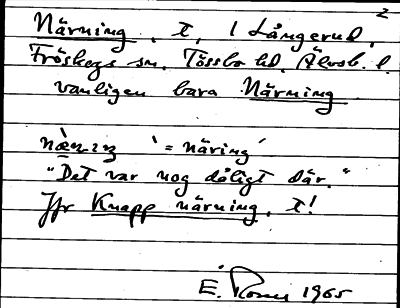 2
Närning, t, 1 Långerud,
Fröskogs sn. Tössbo hd. Älvsb. l.
vanligen bara Närning
"= näring"
"Det var nog dåligt där."
Jfr Knapp närning, t!
E. 1965